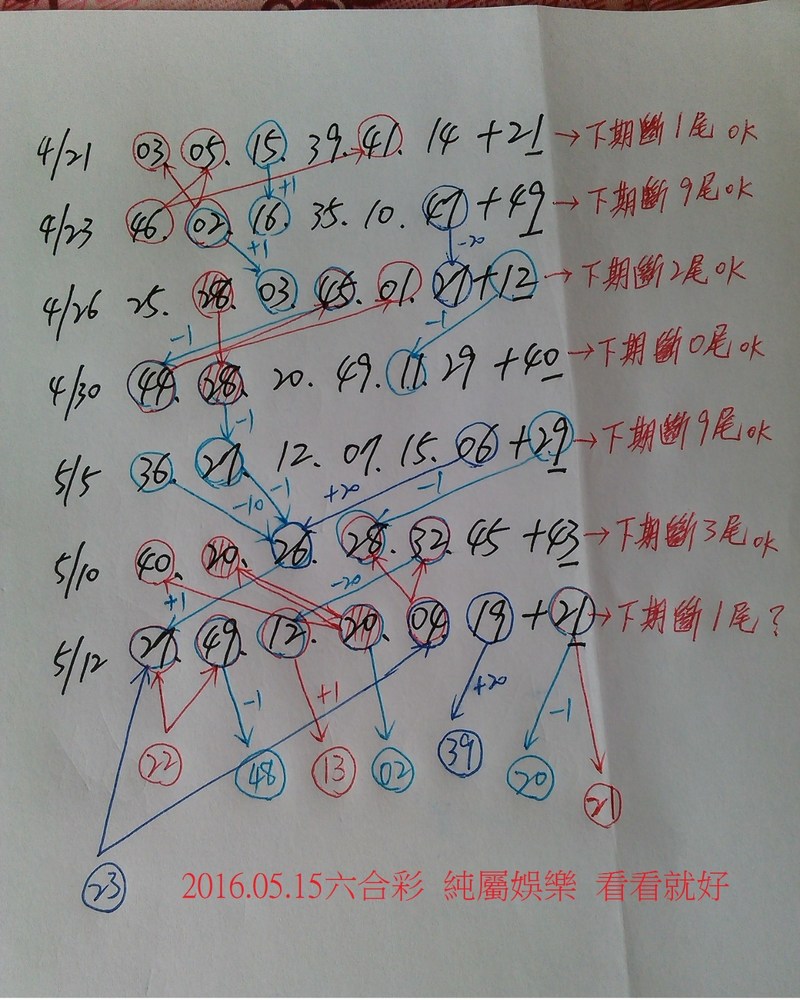 4/21 03. 05. 15. 39. 41. 14 +21 →下期斷1尾 OK
+1
4/23 46. 02. 16. 35. 10. 47 +49 →下期斷9尾 OK
+1 -20
4/26 25. 28. 03. 45. 01. 27 +12 →下期斷2尾 OK
-1 -1
4/30 44. 28. 20. 49. 11. 29 +40 →下期斷0尾 OK
-1
5/5 36. 27. 12. 07. 15. 06 +29 →下期斷9尾 OK
-10 -1 +20 -1
5/10 40. 20. 26. 28. 32. 45 +43 →下期斷3尾 OK
+1 -20
5/12 27. 49. 12. 20. 04. 19 +21 →下期斷1尾?
-1 +1 +20 -1
22 48 13 02 39 20 21
23
2016.05.15六合彩 純屬娛樂 看看就好